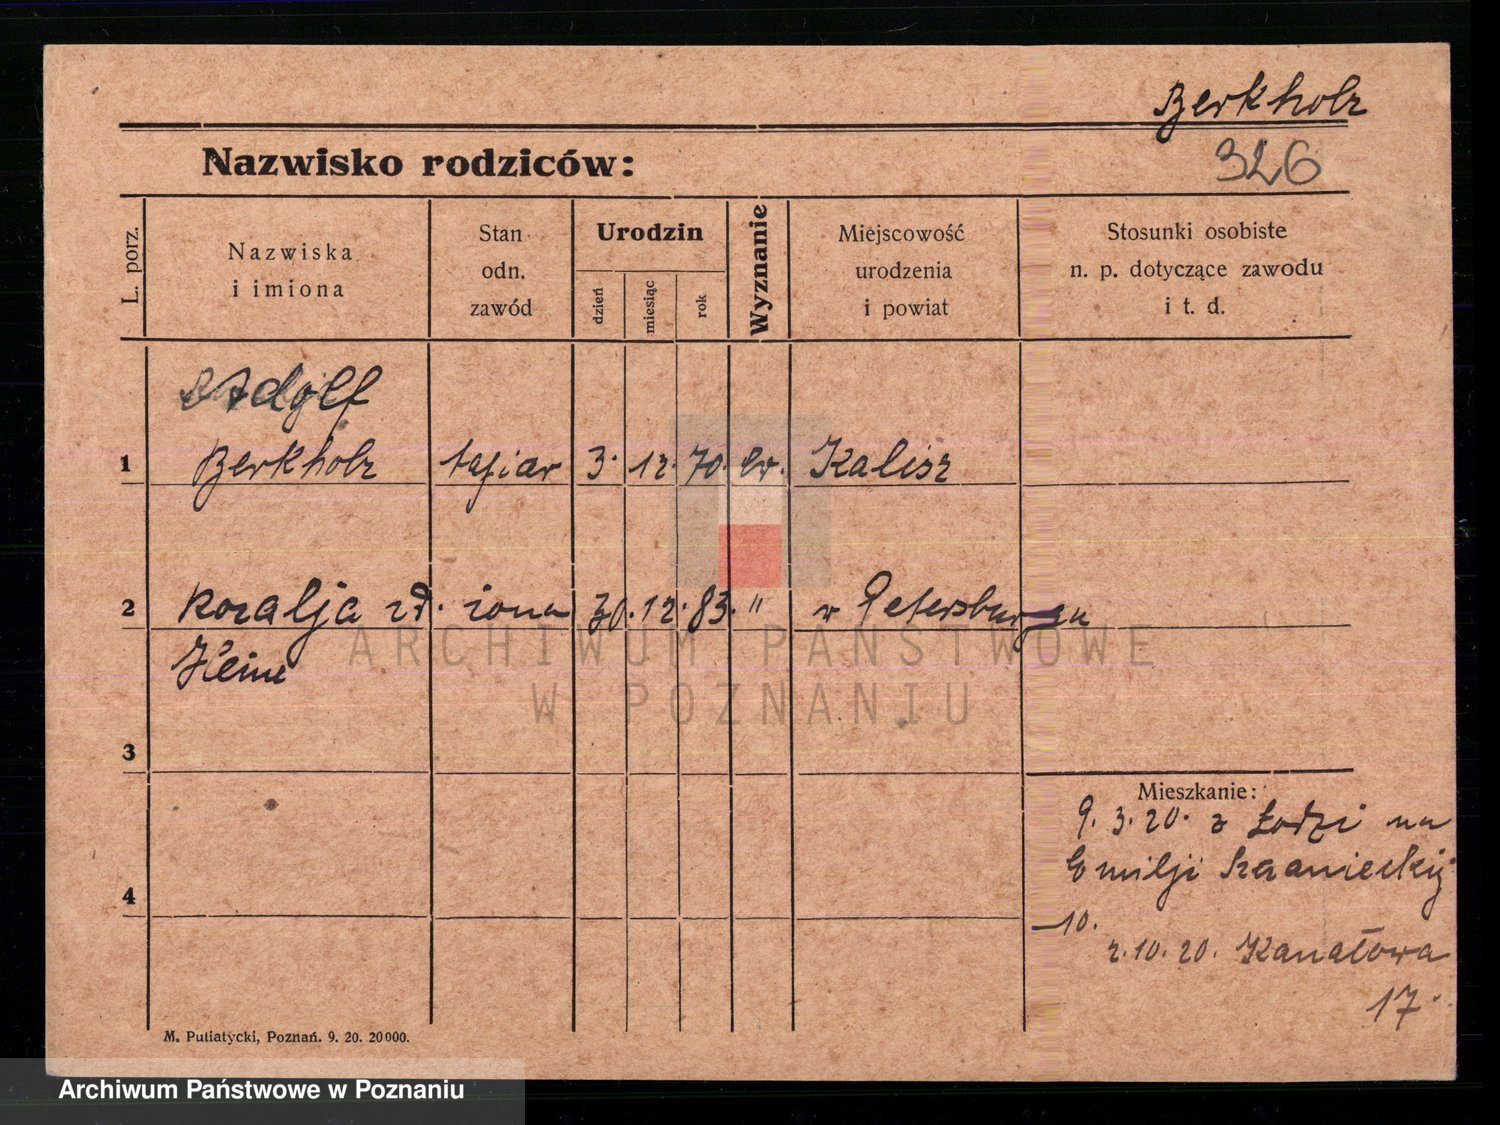 Berkholz
Nazwisko rodziców:
326
L. porz.
Nazwiska
i imiona
Stan
odn.
zawód
Urodzin
dzień
miesiąc
rok
Wyznanie
Miejscowość
urodzenia
i powiat
Stosunki osobiste
n. p. dotyczące zawodu
i t. d.
Adolf
1 Berkholz 3. 12. 70. ew. Kalisz
2 Rozalja zd. żona 30. 12. 83. " w Petersburgu
Heine
3
Mieszkanie:
9. 3. 20. z Łodzi na
Emilji Szczanieckij
4
10.
2. 10. 20. Kanałowa
17.
M. Putiatycki, Poznań. 9. 20. 20000.
ARCHIWUM PAŃSTWOWE
W POZNANIU
Archiwum Państwowe w Poznaniu